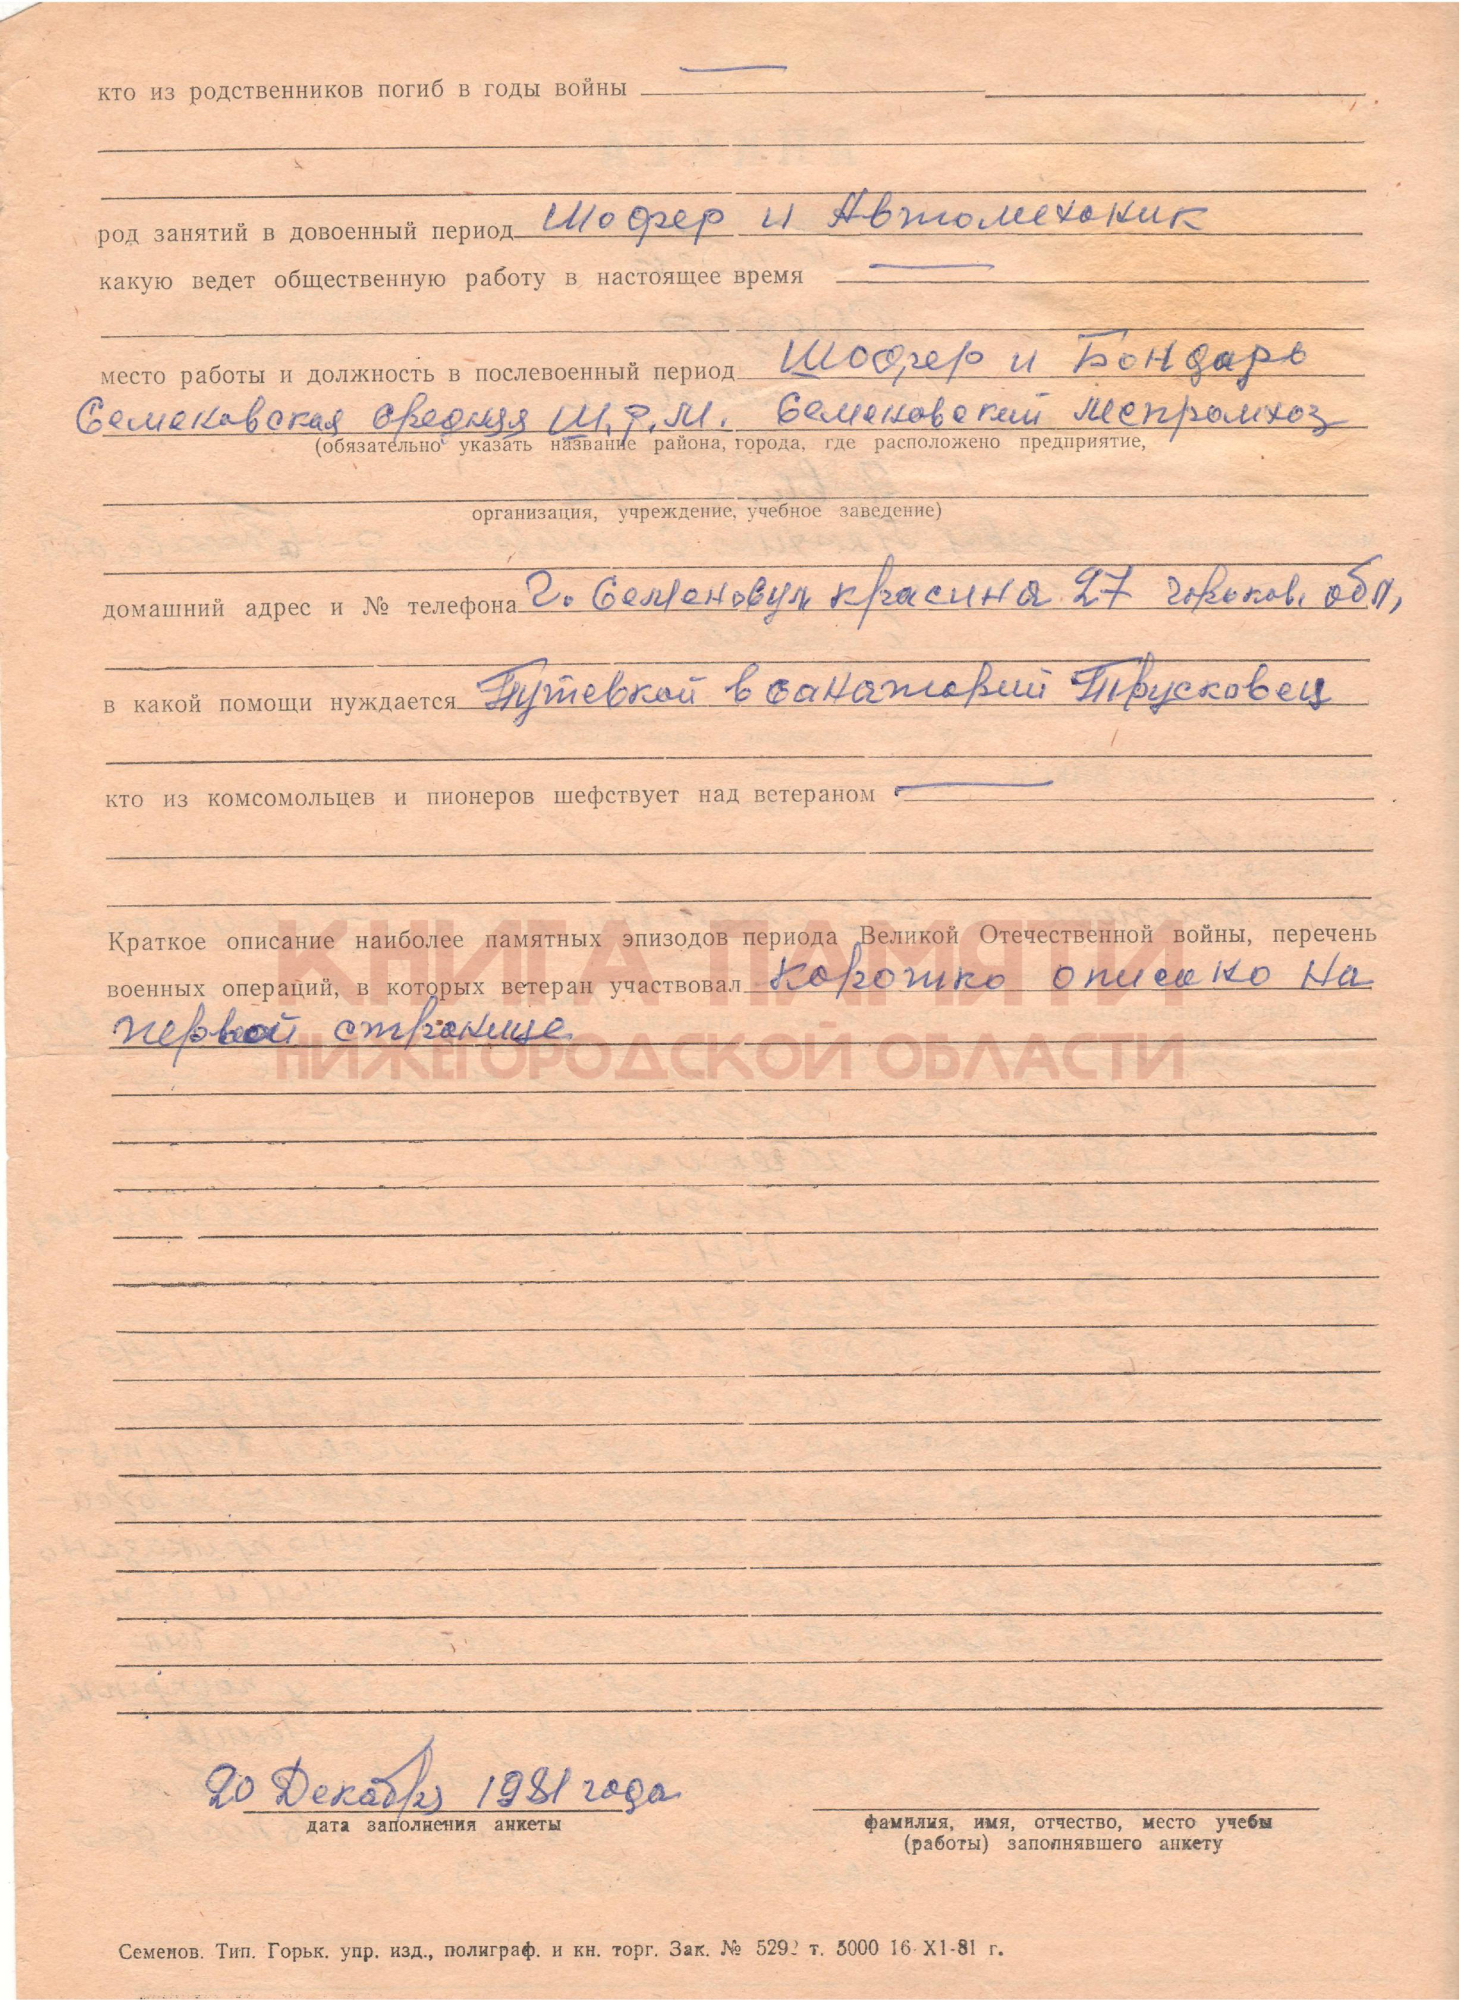 кто из родственников погиб в годы войны —
род занятий в довоенный период Шофер и Автомеханик
какую ведет общественную работу в настоящее время —
место работы и должность в послевоенный период Шофер и Бондарь
Семеновская средняя Ш.Р.М. Семеновский Меспромхоз
(обязательно указать название района, города, где расположено предприятие,
организация, учреждение, учебное заведение)
домашний адрес и № телефона г. Семенов ул красина 27 горьков. обл,
в какой помощи нуждается Путевкой в санаторий Трусковец
кто из комсомольцев и пионеров шефствует над ветераном —
КНИГА ПАМЯТИ
Краткое описание наиболее памятных эпизодов периода Великой Отечественной войны, перечень
военных операций, в которых ветеран участвовал Коротко описано на
первой странице
НИЖЕГОРОДСКОЙ ОБЛАСТИ
20 Декабря 1981 года
дата заполнения анкеты
фамилия, имя, отчество, место учебы
(работы) заполнявшего анкету
Семенов. Тип. Горьк. упр. изд., полиграф. и кн. торг. Зак. № 5292 т. 5000 16-XI-81 г.